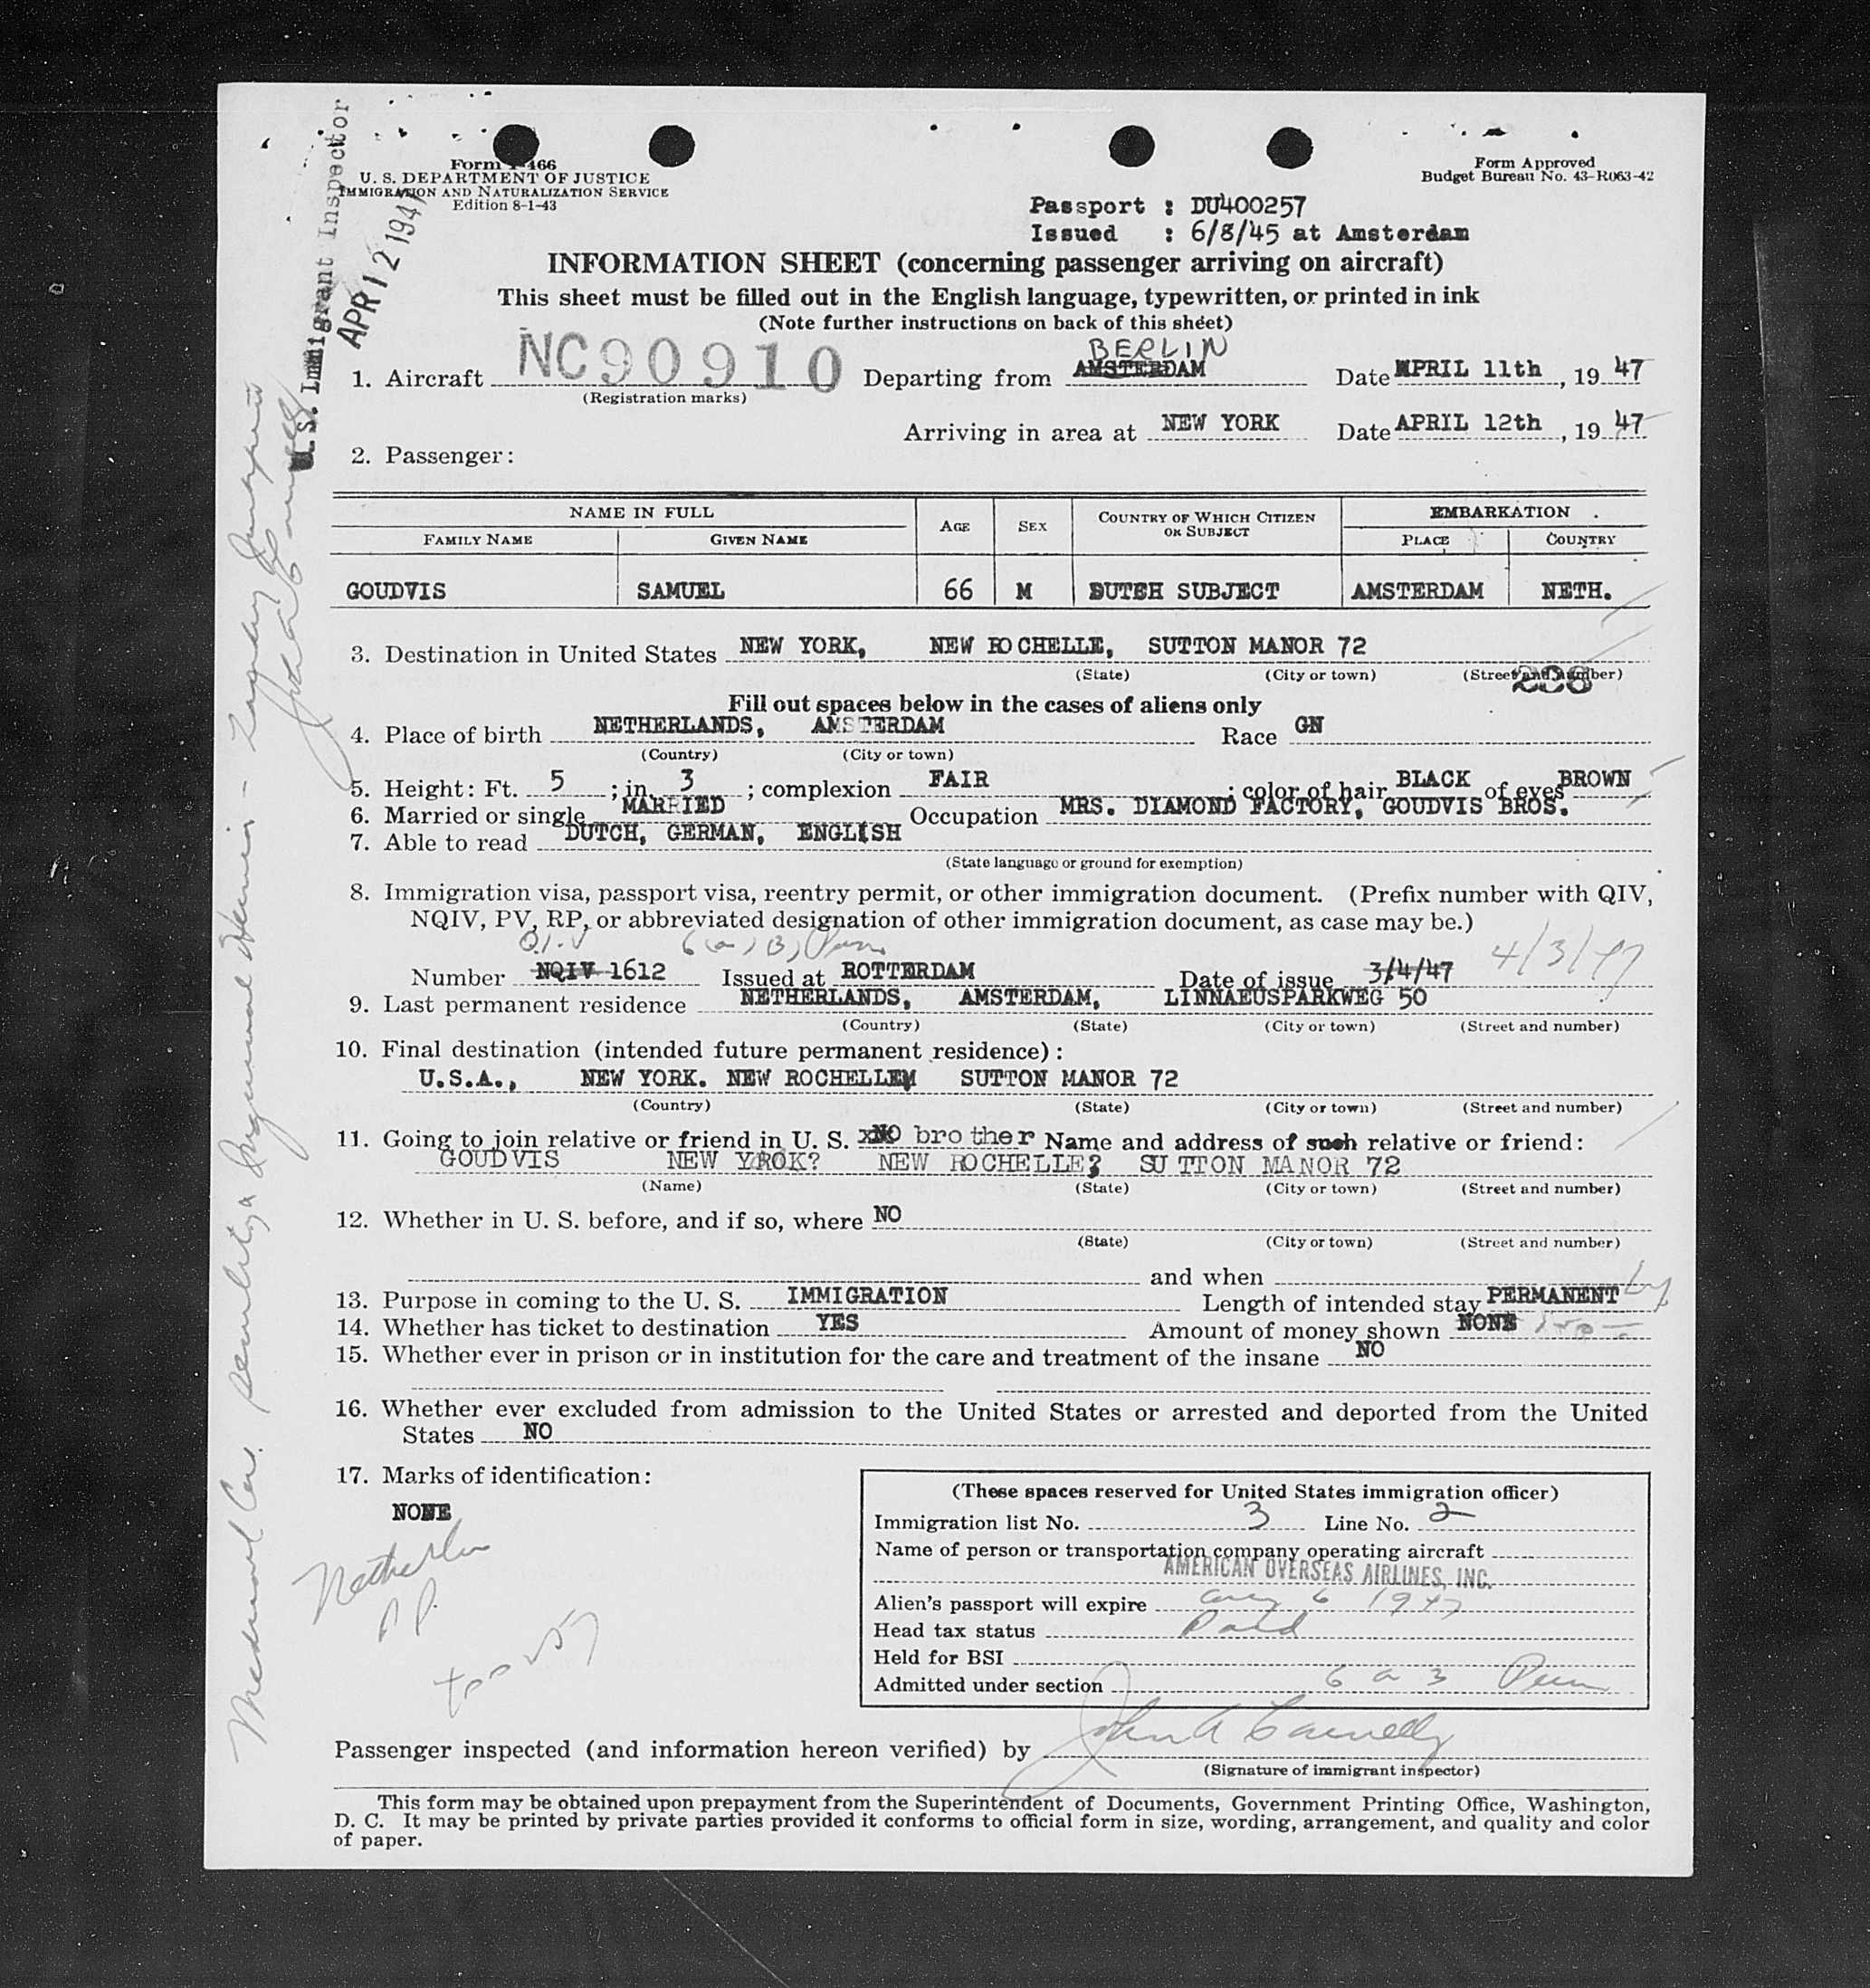 Form I-466
U. S. DEPARTMENT OF JUSTICE
IMMIGRATION AND NATURALIZATION SERVICE
Edition 8-1-43
Form Approved
Budget Bureau No. 43-R063-42
U.S. Immigrant Inspector
APR 12 1947
Passport : DU400257
Issued : 6/8/45 at Amsterdam
INFORMATION SHEET (concerning passenger arriving on aircraft)
This sheet must be filled out in the English language, typewritten, or printed in ink
(Note further instructions on back of this sheet)
BERLIN
1. Aircraft NC90910 Departing from AMSTERDAM Date APRIL 11th, 19 47
(Registration marks)
Arriving in area at NEW YORK Date APRIL 12th, 19 47
2. Passenger:
NAME IN FULL AGE SEX COUNTRY OF WHICH CITIZEN OR SUBJECT EMBARKATION
FAMILY NAME GIVEN NAME PLACE COUNTRY
GOUDVIS SAMUEL 66 M DUTCH SUBJECT AMSTERDAM NETH.
3. Destination in United States NEW YORK, NEW ROCHELLE, SUTTON MANOR 72
(State) (City or town) (Street and number)
Fill out spaces below in the cases of aliens only
4. Place of birth NETHERLANDS, AMSTERDAM Race GN
(Country) (City or town)
5. Height: Ft. 5 ; in. 3 ; complexion FAIR ; color of hair BLACK of eyes BROWN
6. Married or single MARRIED Occupation MRS. DIAMOND FACTORY, GOUDVIS BROS.
7. Able to read DUTCH, GERMAN, ENGLISH
(State language or ground for exemption)
8. Immigration visa, passport visa, reentry permit, or other immigration document. (Prefix number with QIV,
NQIV, PV, RP, or abbreviated designation of other immigration document, as case may be.)
Q.I.V 6(a)(3) Perm 4/3/47
Number NQIV 1612 Issued at ROTTERDAM Date of issue 3/4/47
9. Last permanent residence NETHERLANDS, AMSTERDAM, LINNAEUSPARKWEG 50
(Country) (State) (City or town) (Street and number)
10. Final destination (intended future permanent residence):
U.S.A., NEW YORK. NEW ROCHELLE SUTTON MANOR 72
(Country) (State) (City or town) (Street and number)
11. Going to join relative or friend in U. S. NO brother Name and address of such relative or friend:
GOUDVIS NEW YROK? NEW ROCHELLE? SUTTON MANOR 72
(Name) (State) (City or town) (Street and number)
12. Whether in U. S. before, and if so, where NO
(State) (City or town) (Street and number)
and when
13. Purpose in coming to the U. S. IMMIGRATION Length of intended stay PERMANENT
14. Whether has ticket to destination YES Amount of money shown NONE
15. Whether ever in prison or in institution for the care and treatment of the insane NO
16. Whether ever excluded from admission to the United States or arrested and deported from the United
States NO
17. Marks of identification:
NONE
(These spaces reserved for United States immigration officer)
Immigration list No. 3 Line No. 2
Name of person or transportation company operating aircraft
AMERICAN OVERSEAS AIRLINES, INC.
Alien's passport will expire 6 1947
Head tax status Paid
Held for BSI
Admitted under section 6 a 3 Perm
Passenger inspected (and information hereon verified) by John A
(Signature of immigrant inspector)
This form may be obtained upon prepayment from the Superintendent of Documents, Government Printing Office, Washington,
D. C. It may be printed by private parties provided it conforms to official form in size, wording, arrangement, and quality and color
of paper.